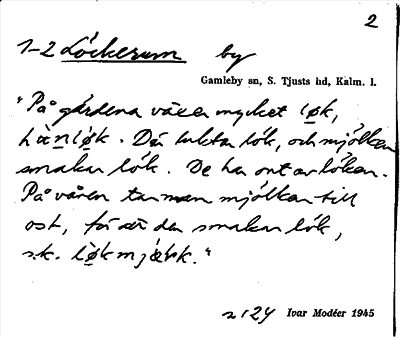 2
1-2 Löckerum by
Gamleby sn, S. Tjusts hd, Kalm. l.
"På gårdena växer mycket løk,
hänløk. Dä luktar lök, och mjölken
smakar lök. De ha ont av löken.
På våren tar man mjölken till
ost, för då den smakar lök,
s.k. løkmjælk."
Ivar Modéer 1945